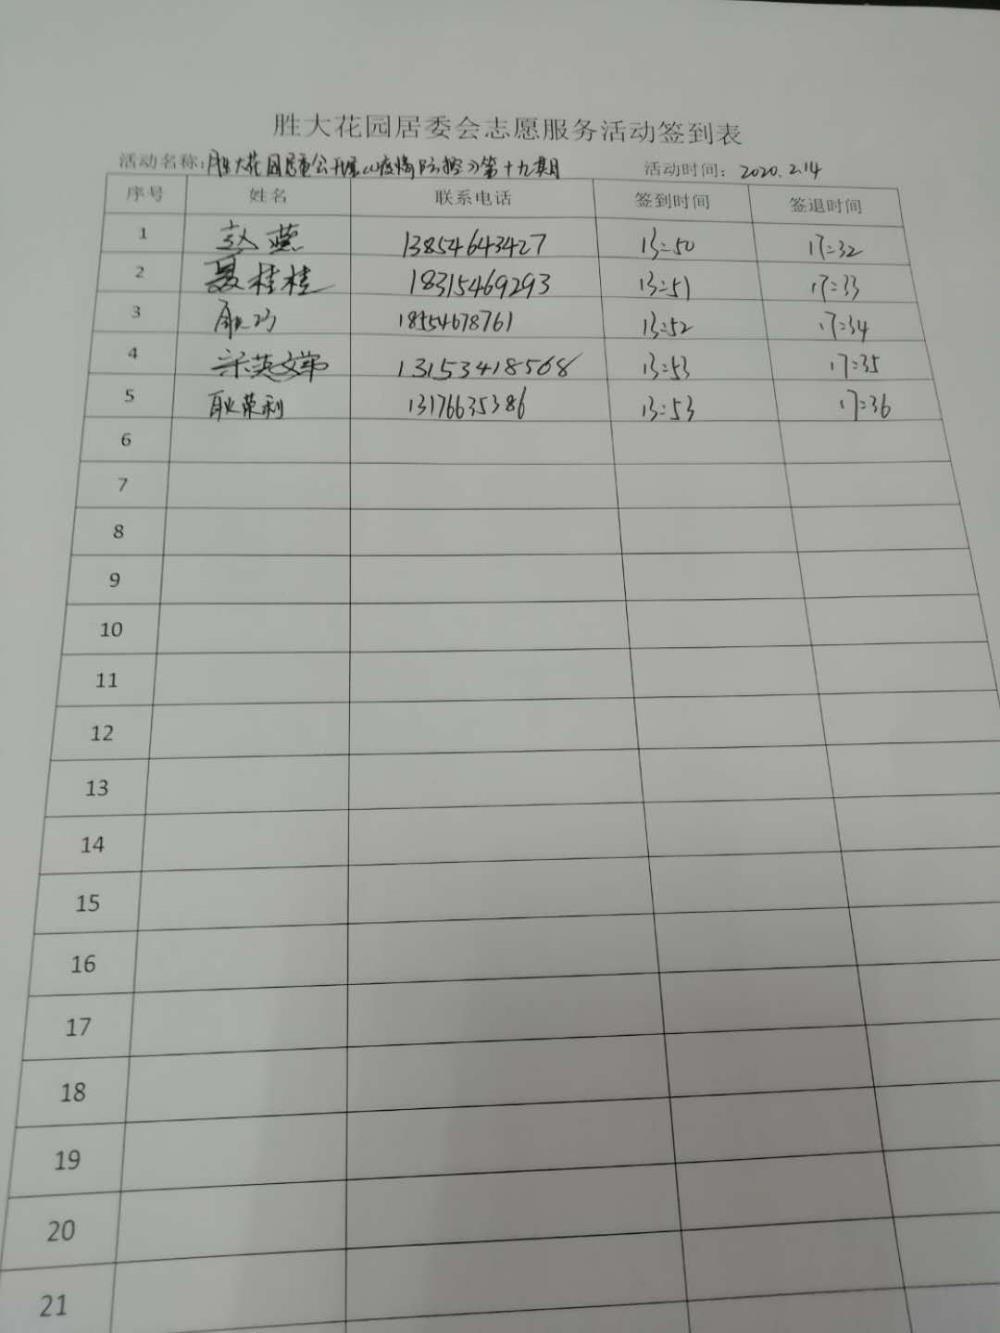 胜大花园居委会志愿服务活动签到表
活动名称:胜大花园居委会开展《疫情防控》第十九期 活动时间: 2020.2.14
序号 姓名 联系电话 签到时间 签退时间
1 赵燕 13854643427 13:50 17:32
2 聂桂桂 18315469293 13:51 17:33
3 18554678761 13:52 17:34
4 13153418568 13:53 17:35
5 耿荣利 13176635386 13:53 17:36
6
7
8
9
10
11
12
13
14
15
16
17
18
19
20
21